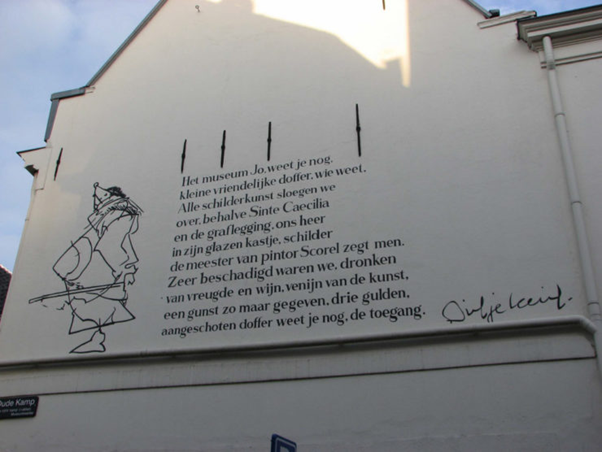 Het museum Jo, weet je nog,
kleine vriendelijke doffer, wie weet.
Alle schilderkunst sloegen we
over, behalve Sinte Caecilia
en de graflegging, ons heer
in zijn glazen kastje, schilder
de meester van pintor Scorel zegt men.
Zeer beschadigd waren we, dronken
van vreugde en wijn, venijn van de kunst,
een gunst zo maar gegeven, drie gulden,
aangeschoten doffer weet je nog, de toegang.
Oude Kamp